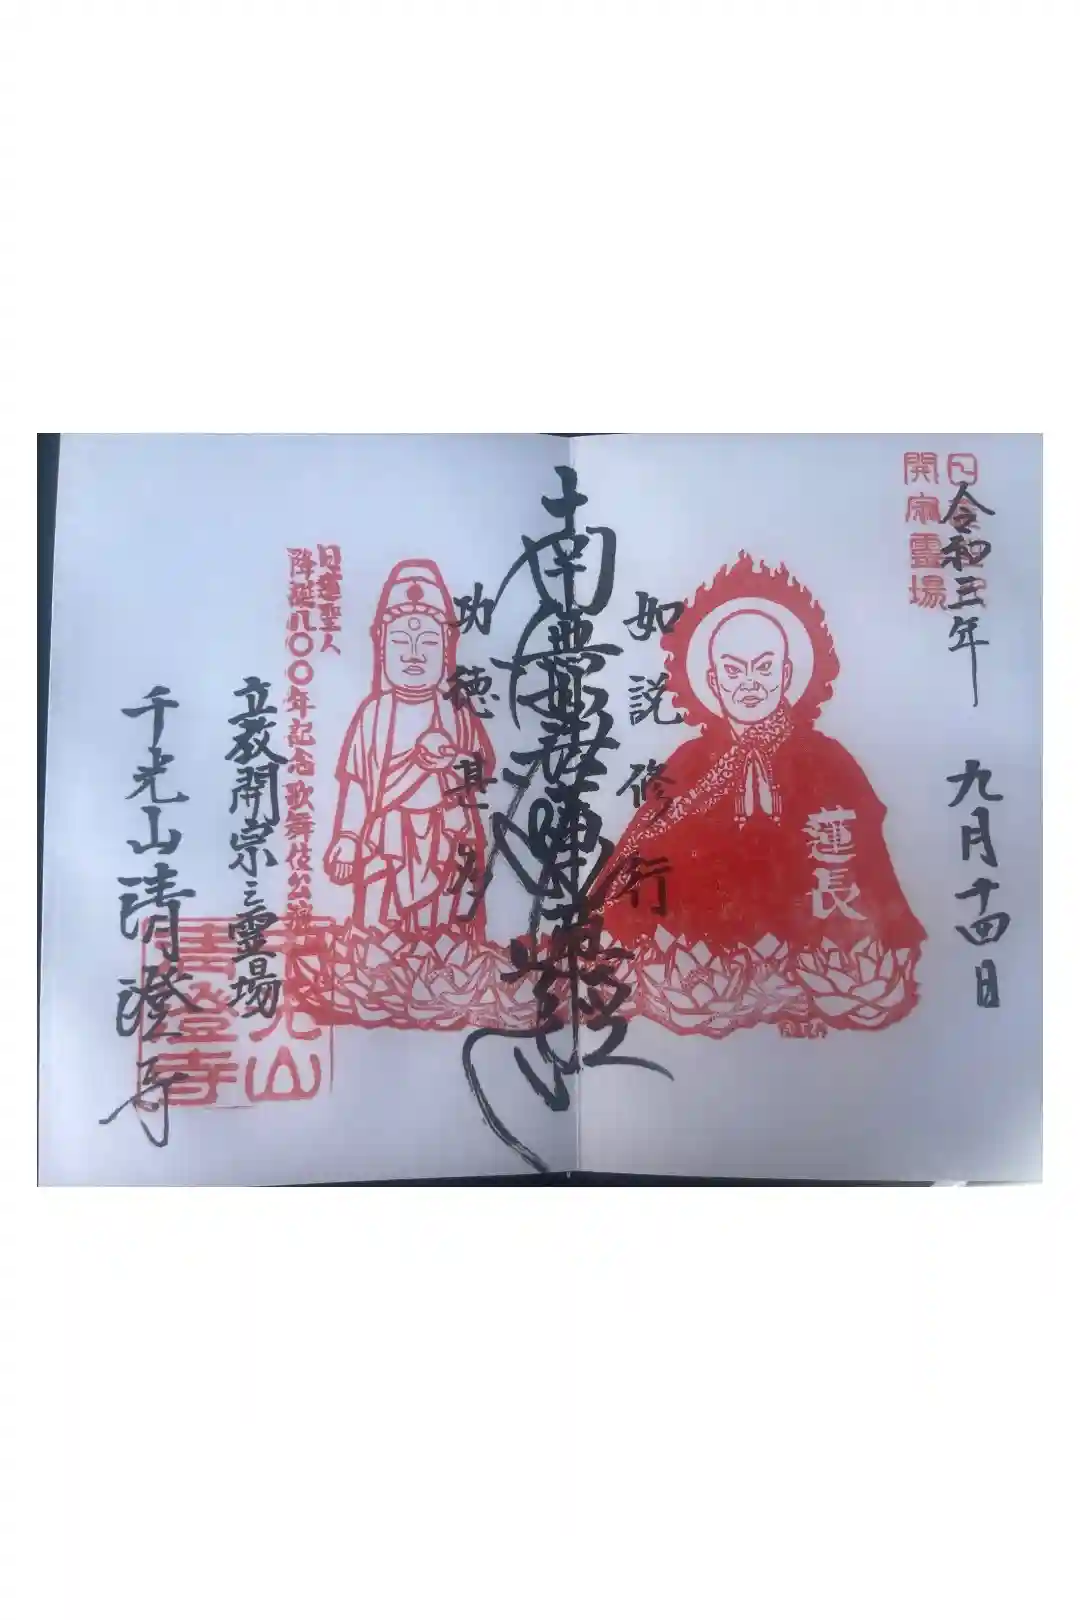 令和三年 九月十四日
開宗霊場
蓮長
如説修行
南無妙法蓮華経
功徳甚多
日蓮聖人
降誕八〇〇年記念歌舞伎公演
立教開宗之霊場
千光山清澄寺
千光山
清澄寺